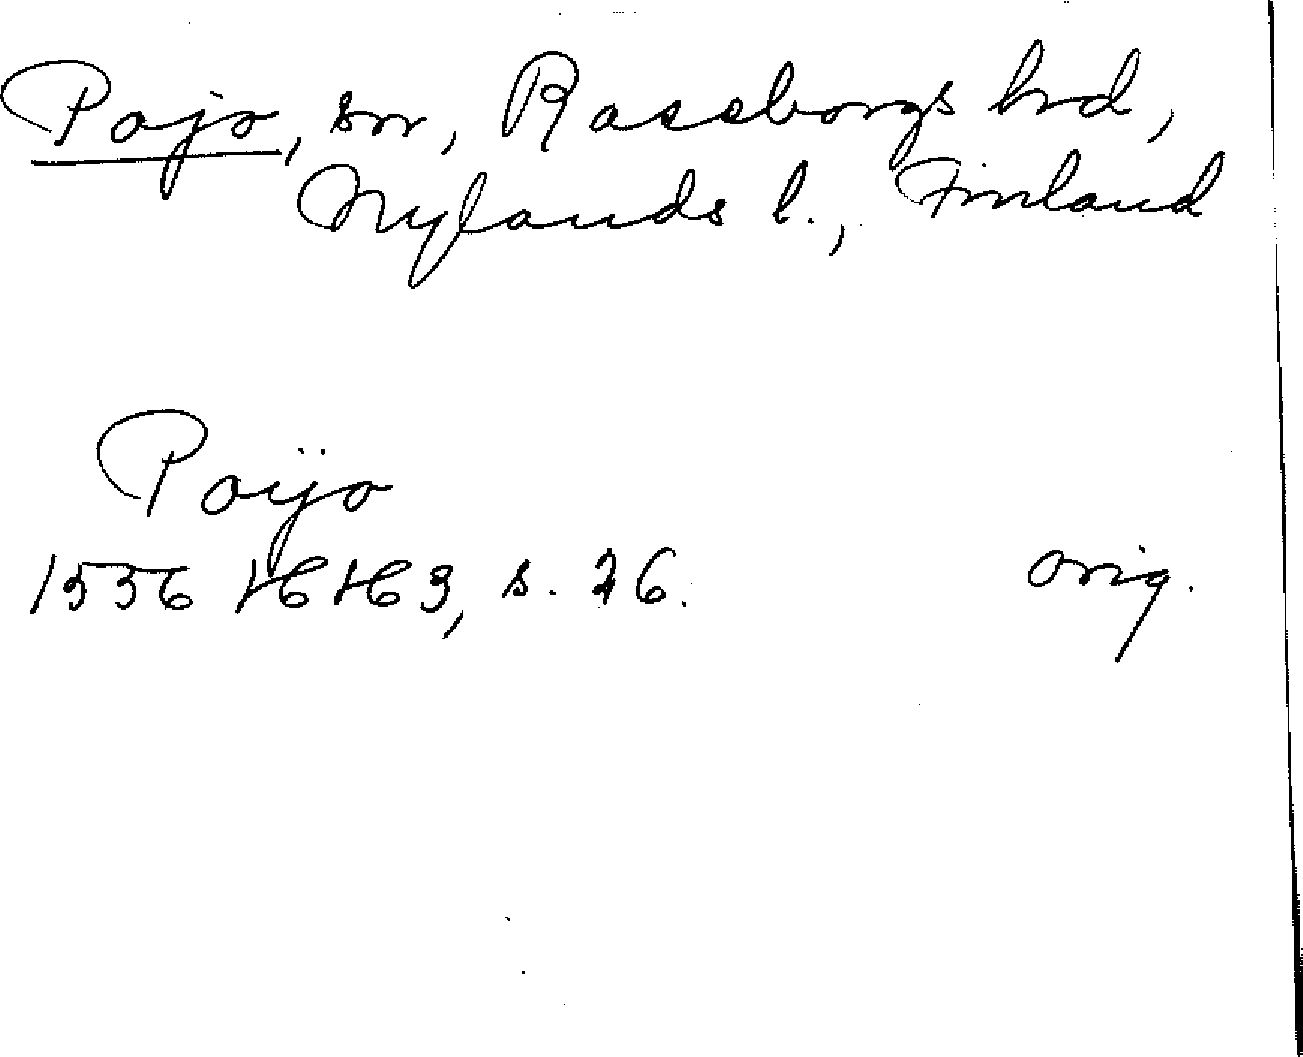 Pojo, sn, Raseborgs hd,
Nylands l., Finland
Poÿo
1556 16/63, s. 26. orig.